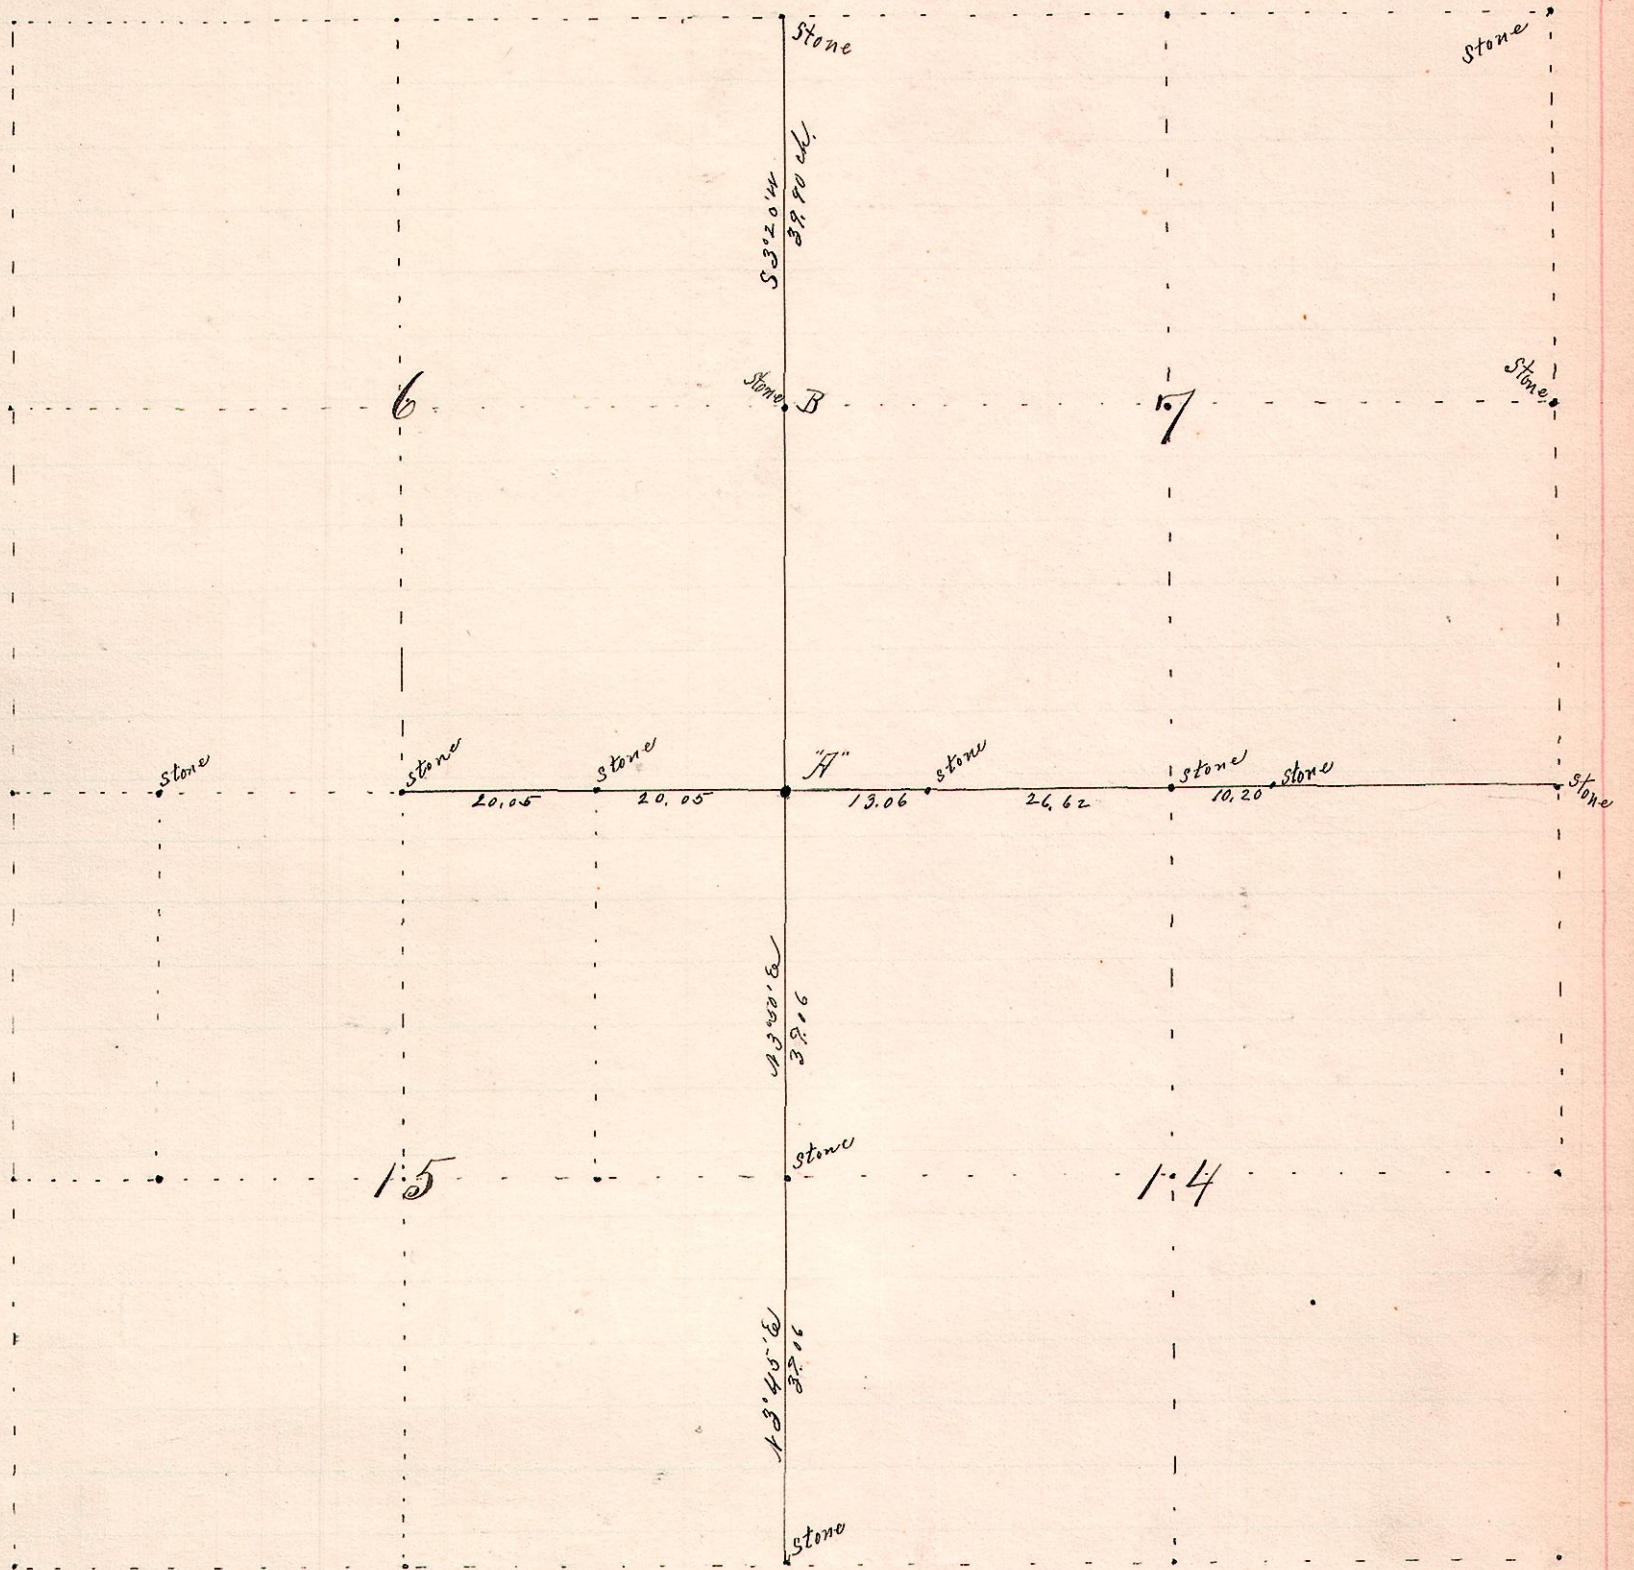 Stone
Stone
S 3° 20' W
39.90 ch.
6
Stone
B
7
Stone
Stone
Stone
Stone
"A"
Stone
Stone
Stone
Stone
20.05
20.05
13.06
26.62
10.20
N 3° 50' E
39.06
Stone
15
14
N 3° 45' E
39.06
Stone